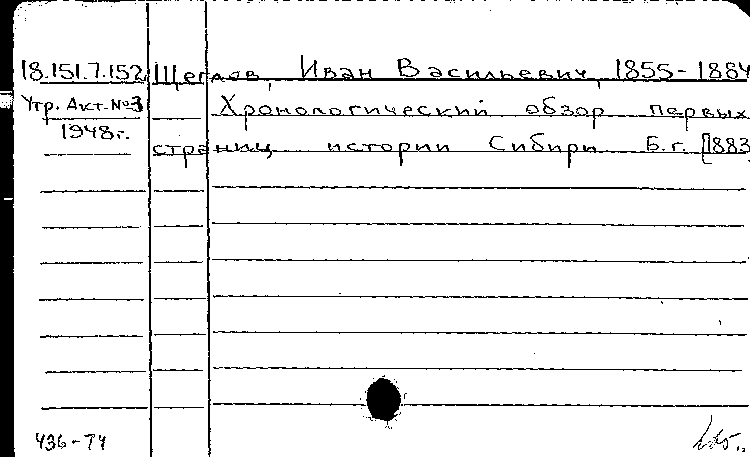 18.151.7.152 Щеглов, Иван Васильевич, 1855-1884
Утр. Акт. №3 Хронологический обзор первых
1948г.
страниц истории Сибири Б.г. [1883
436-74